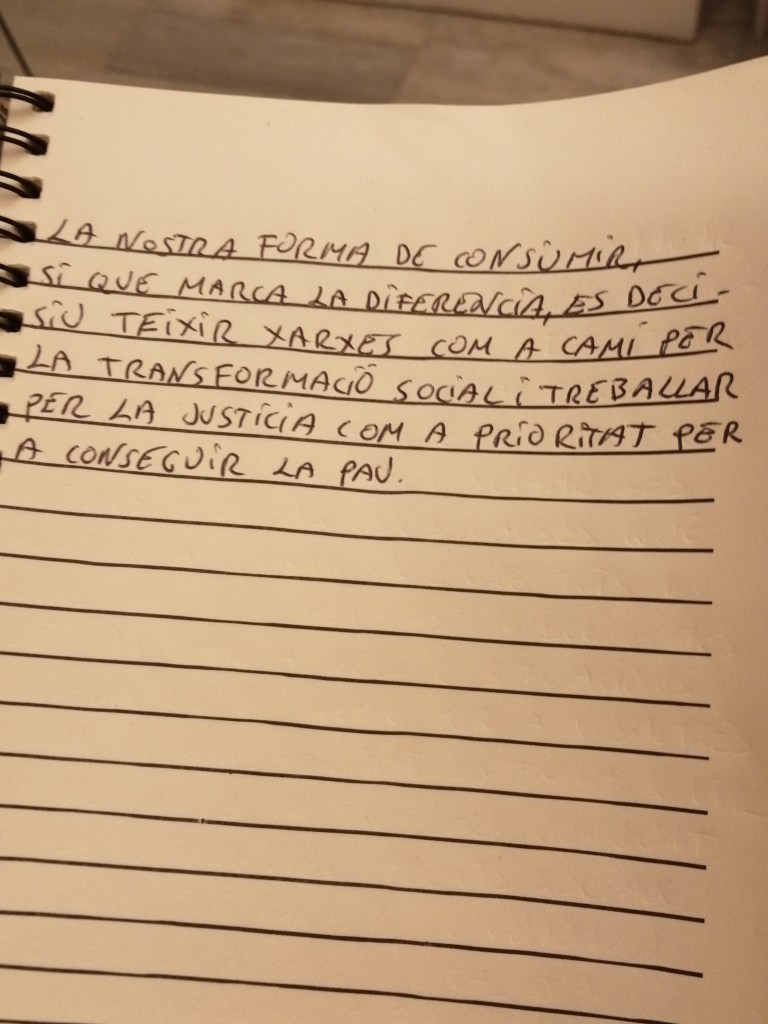 LA NOSTRA FORMA DE CONSUMIR,
SÍ QUE MARCA LA DIFERENCIA, ES DECI-
SIU TEIXIR XARXES COM A CAMÍ PER
LA TRANSFORMACIÓ SOCIAL i TREBALLAR
PER LA JUSTÍCIA COM A PRIORITAT PER
A CONSEGUIR LA PAU.